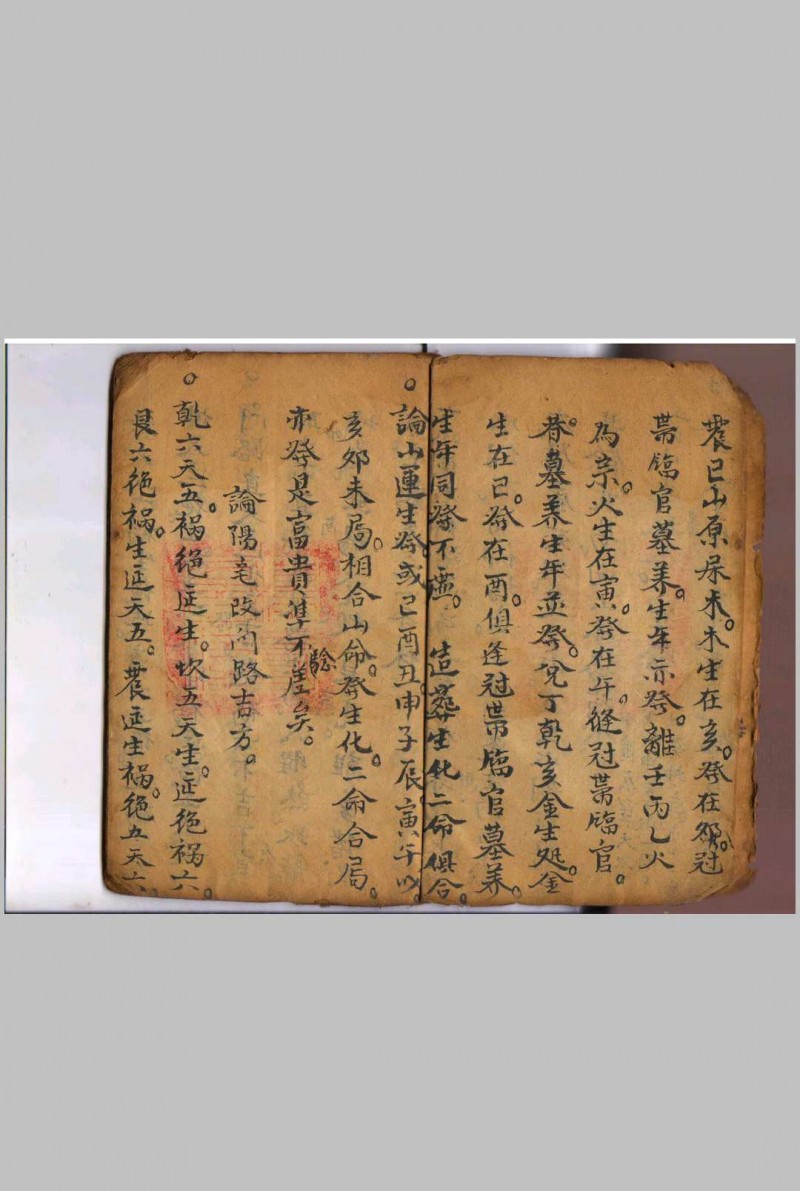 震已山原屎木。木生在亥。發在夘。冠
帶臨官墓养。生年亦發。離壬丙乙火
為宗。火生在寅。發在午。縫冠帶臨官。
墓养生年並發。兌丁乾亥金生处。金
生在巳。發在酉。俱逢冠帶臨官墓养。
生年同發不虛。 造葬生化二命俱合。
論山運生發。或巳酉丑。申子辰。寅午
亥夘未局。相合山命發生化。二命合局。
亦發是富貴準不差矣。驗
論陽宅改門路吉方。
乾六天五。禍絕延生。坎五天生。延絕禍六。
艮六绝禍。生延天五。震延生禍。绝五天六。